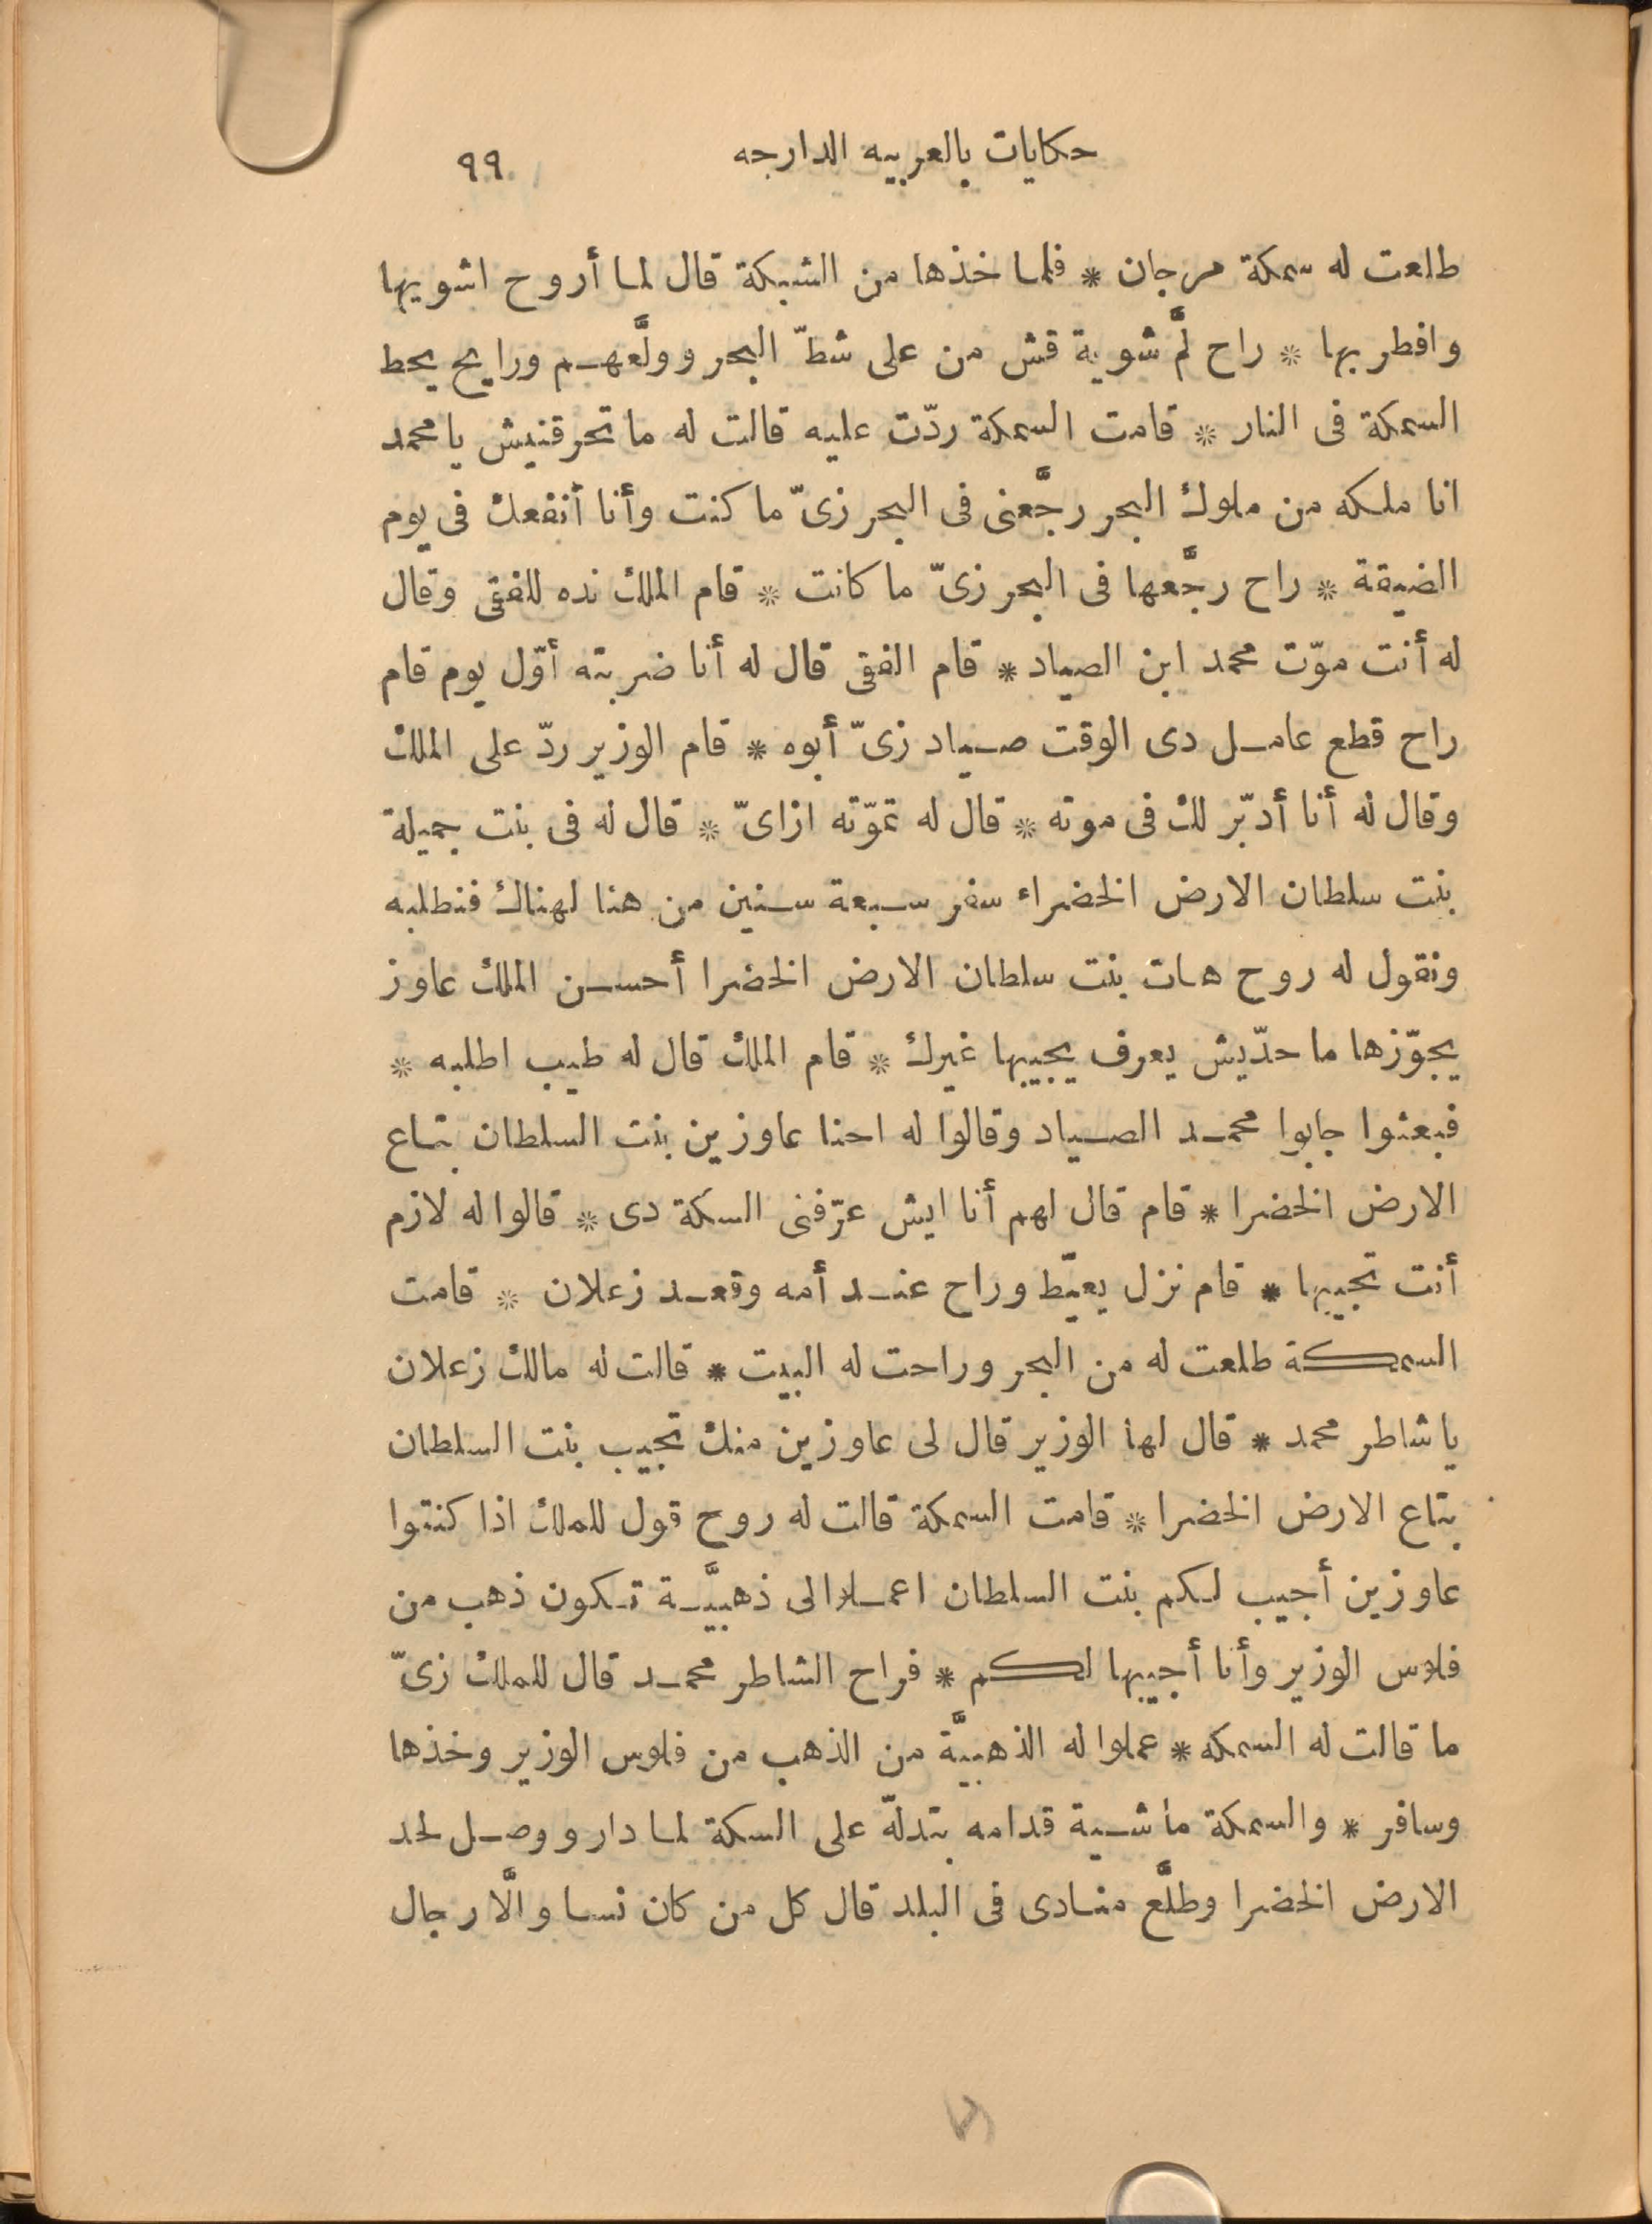 حكايات بالعربيه الدارجه ٩٩
طلعت له سمكة مرجان * فلما خذها من الشبكة قال لما أروح اشويها
وافطر بها * راح لمَّ شوية قش من على شطّ البحر وولَّعهم ورايح يحط
السمكة فى النار * قامت السمكة ردّت عليه قالت له ما تحرقنيش يا محمد
انا ملكه من ملوك البحر رجَّعنى فى البحر زىّ ما كنت وأنا أنفعك فى يوم
الضيقة * راح رجَّعها فى البحر زىّ ما كانت * قام الملك نده للفقى وقال
له أنت موّت محمد ابن الصياد * قام الفقى قال له أنا ضربته أوّل يوم قام
راح قطع عامل دى الوقت صياد زىّ أبوه * قام الوزير ردّ على الملك
وقال له أنا أدبّر لك فى موته * قال له تموّته ازاىّ * قال له فى بنت جميلة
بنت سلطان الارض الخضراء سفر سبعة سنين من هنا لهناك فنطلبه
ونقول له روح هات بنت سلطان الارض الخضرا أحسن الملك عاوز
يجوّزها ما حدّيش يعرف يجيبها غيرك * قام الملك قال له طيب اطلبه *
فبعثوا جابوا محمد الصياد وقالوا له احنا عاوزين بنت السلطان بتاع
الارض الخضرا * قام قال لهم أنا ايش عرّفنى السكة دى * قالوا له لازم
أنت تجيبها * قام نزل يعيّط وراح عند أمه وقعد زعلان * قامت
السمكة طلعت له من البحر وراحت له البيت * قالت له مالك زعلان
يا شاطر محمد * قال لها الوزير قال لى عاوزين منك تجيب بنت السلطان
بتاع الارض الخضرا * قامت السمكة قالت له روح قول للملك اذا كنتوا
عاوزين أجيب لكم بنت السلطان اعملوا لى ذهبيَّة تكون ذهب من
فلوس الوزير وأنا أجيبها لكم * فراح الشاطر محمد قال للملك زىّ
ما قالت له السمكه * عملوا له الذهبيَّة من الذهب من فلوس الوزير وخذها
وسافر * والسمكة ماشية قدامه بتدلّه على السكة لما دار ووصل لحد
الارض الخضرا وطلَّع منادى فى البلد قال كل من كان نسا والَّا رجال